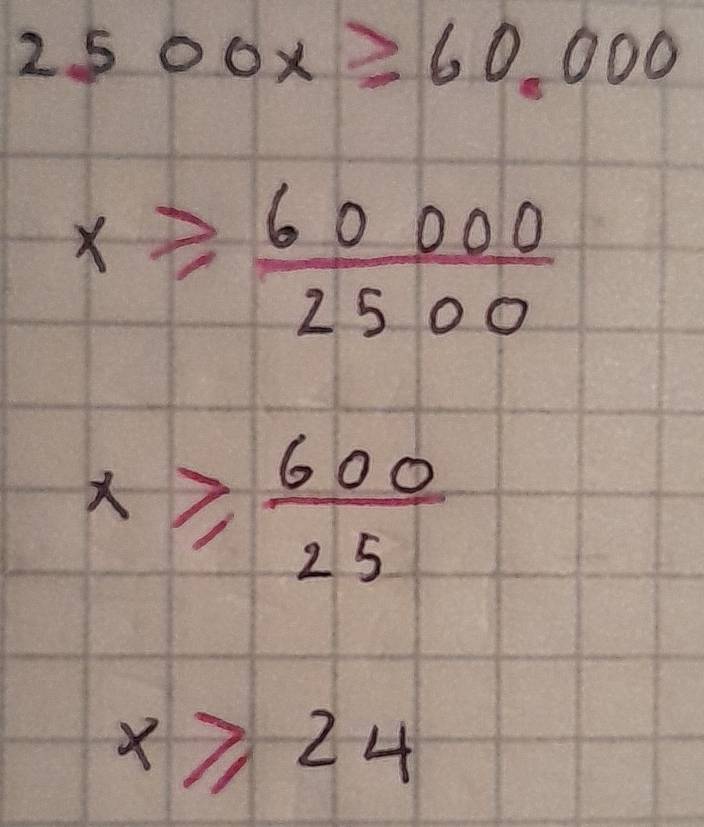 2.500x ≥ 60.000
x ≥ 60 000
2500
x ≥ 600
25
x ≥ 24